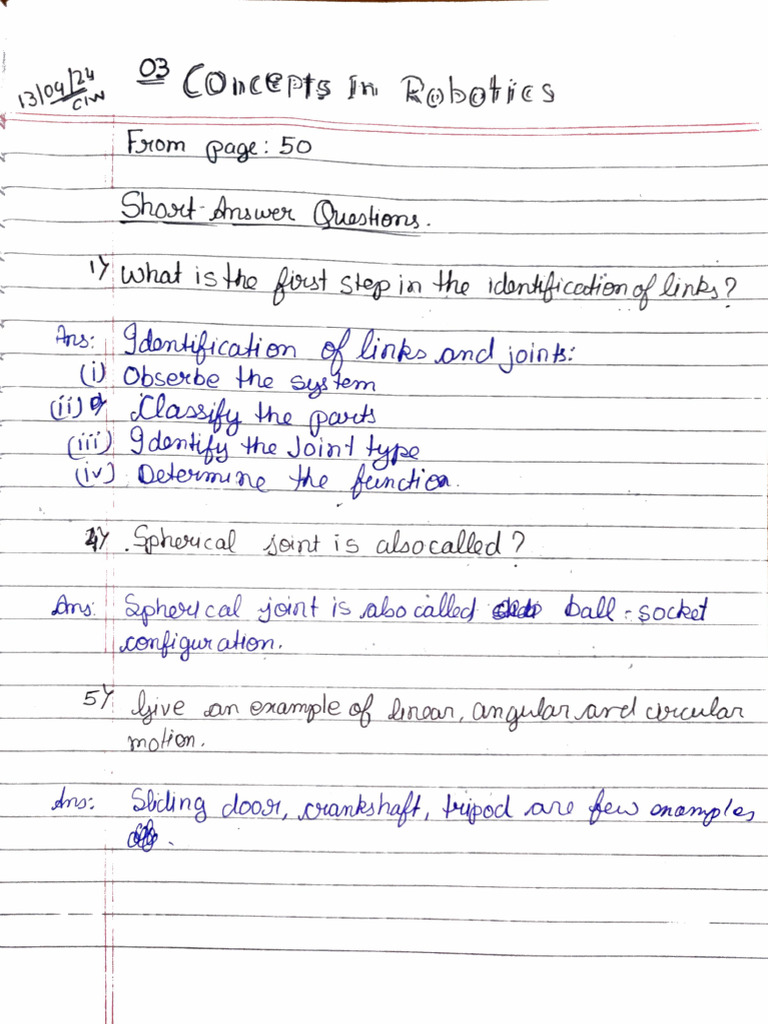 13/04/24
C/W
03 Concepts In Robotics
From page: 50
Short-Answer Questions.
1) What is the first step in the identification of links?
Ans: Identification of links and joints:
(i) Obserbe the system
(ii) Classify the parts
(iii) Identify the Joint type
(iv) Determine the function.
4) Spherical joint is also called?
Ans: Spherical joint is also called ball-socket
configuration.
5) Give an example of linear, angular and circular
motion.
Ans: Sliding door, crankshaft, tripod are few examples